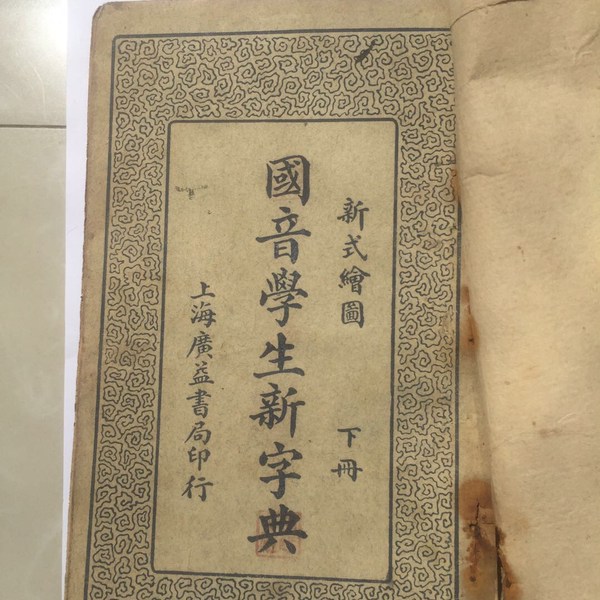 新式繪圖 下冊
國音學生新字典
上海廣益書局印行